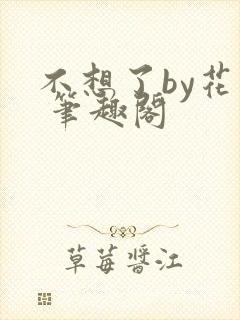 不想了by花
笔趣阁
草莓酱江